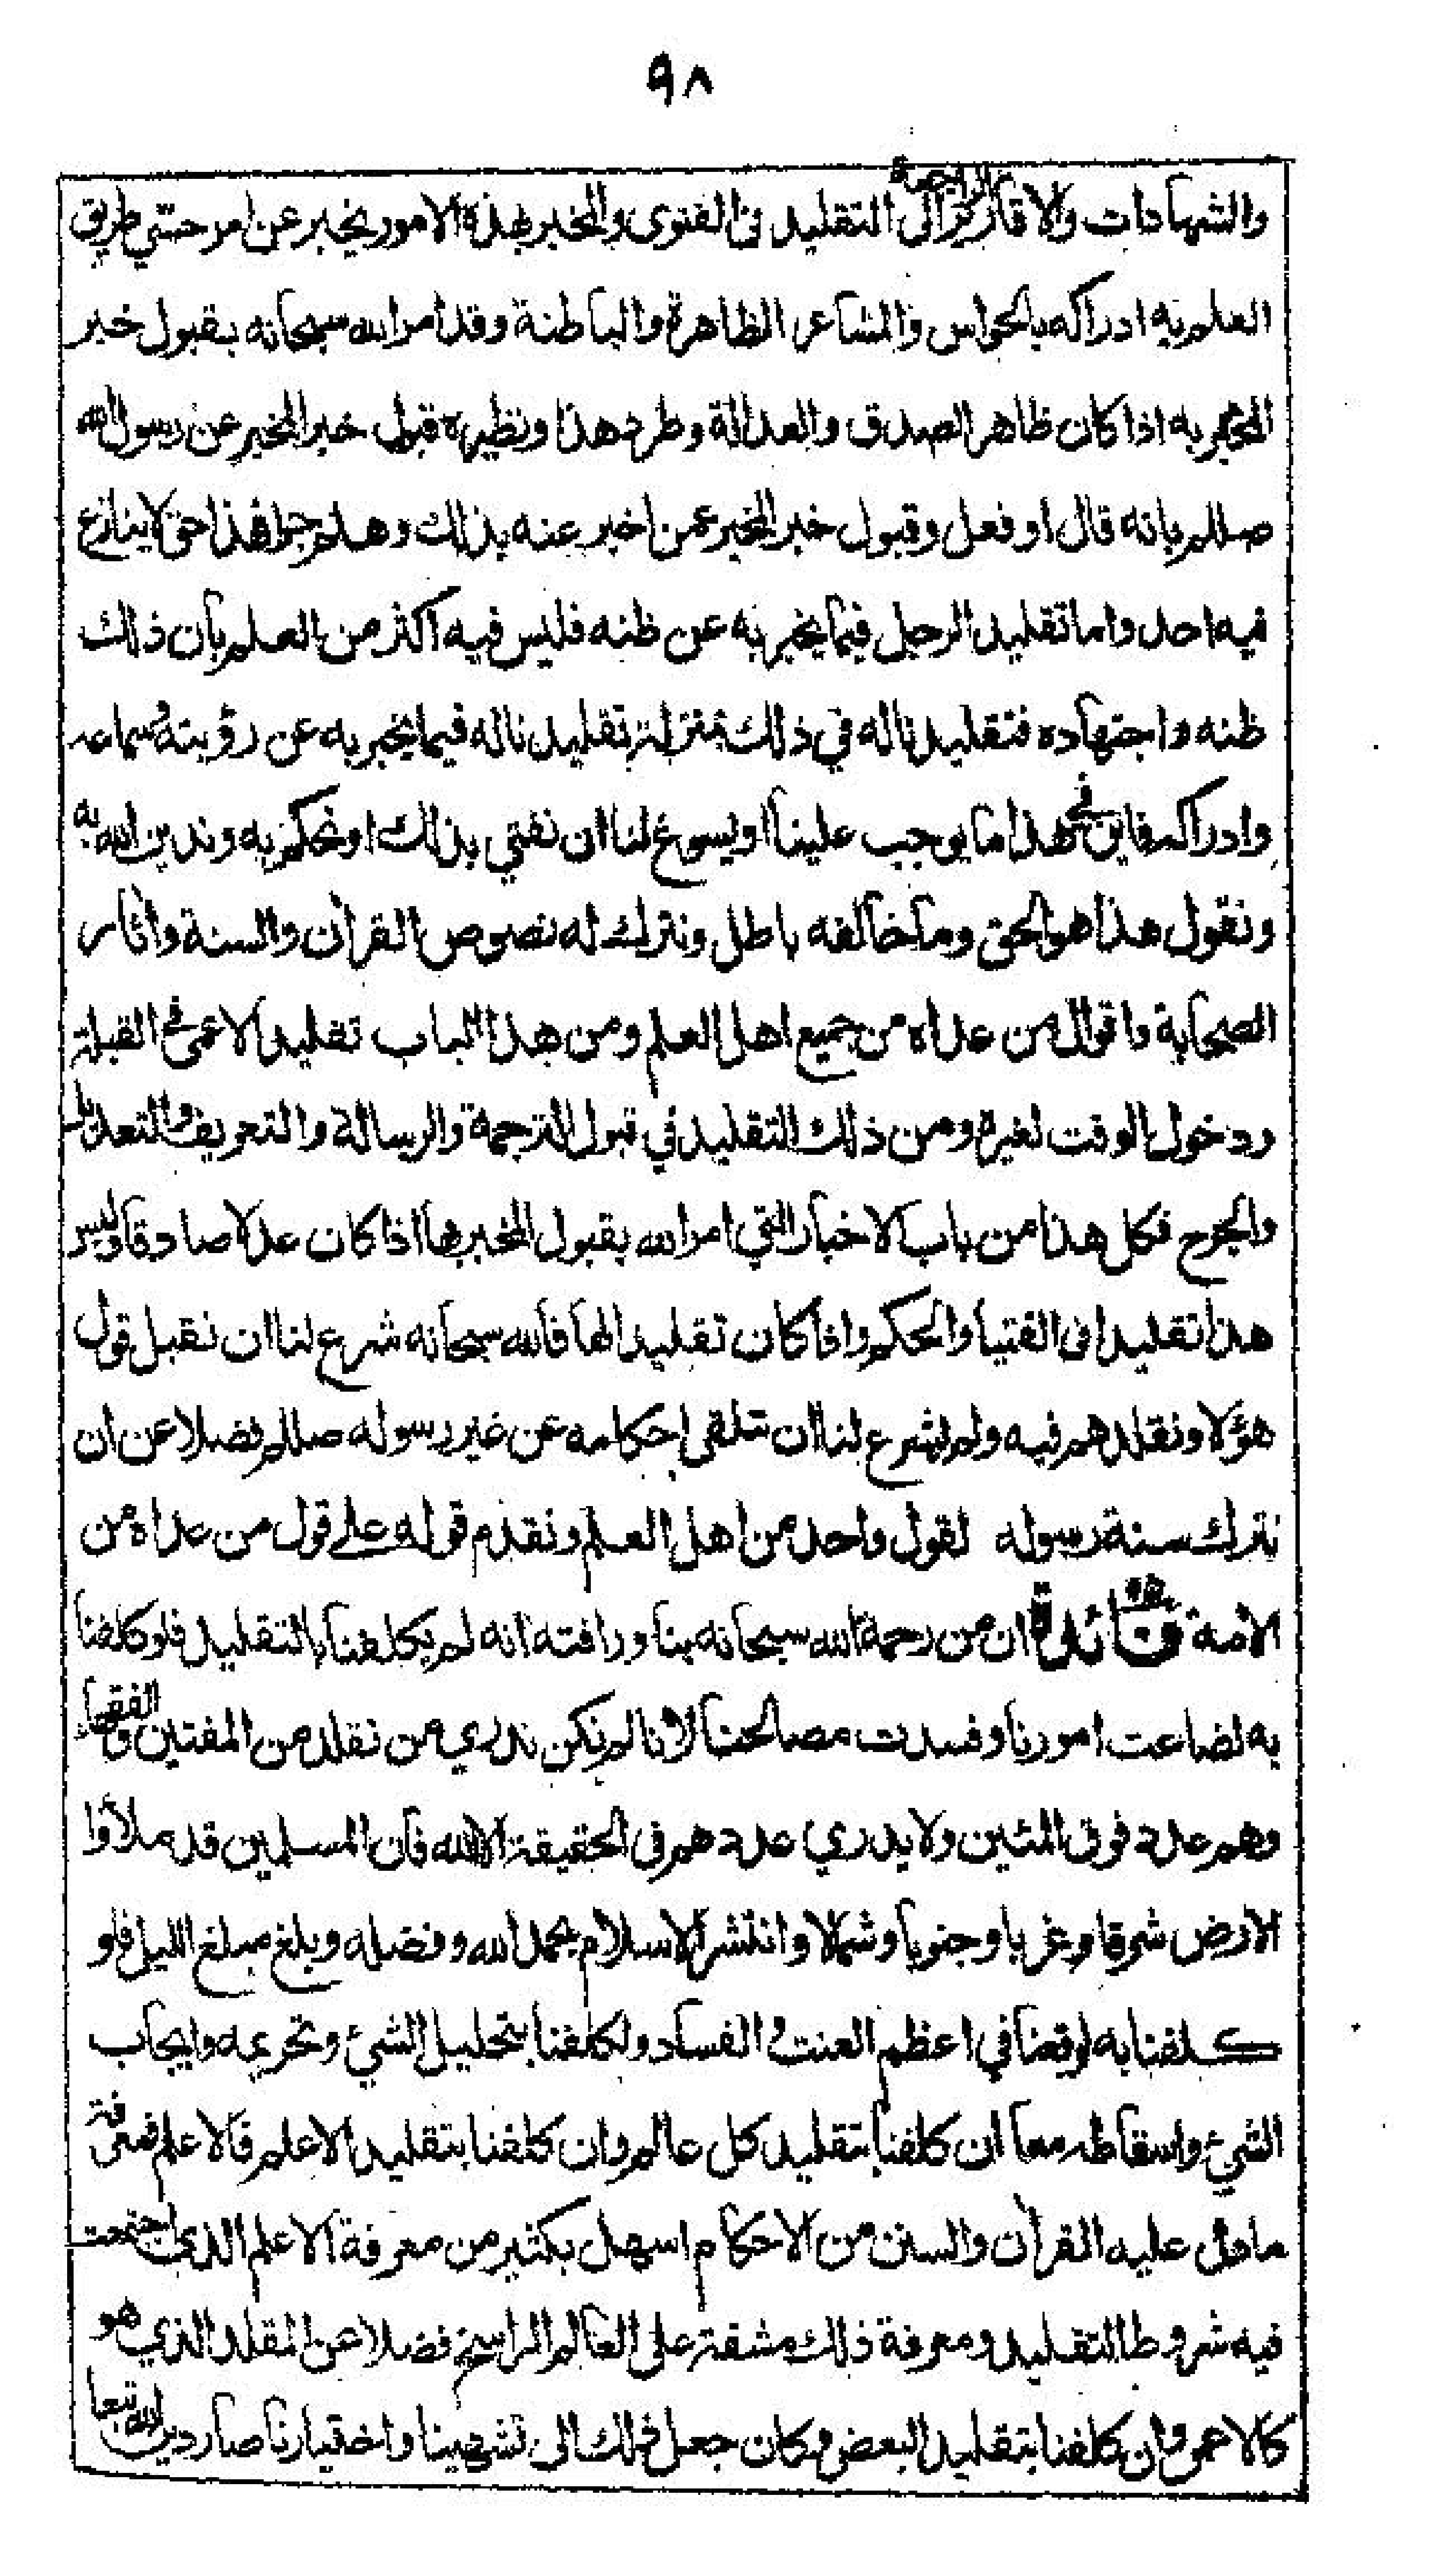 ٩٨
والشهادات والاقارير الراجعة الى التقليد فى الفتوى والمخبر بهذه الامور يخبر عن امر حسّي طريق
العلم به ادراكه بالحواس والمشاعر الظاهرة والباطنة وقد امر الله سبحانه بقبول خبر
المخبر به اذا كان ظاهر الصدق والعدالة وطرد هذا ونظيره قبول خبر المخبر عن رسول الله
صللم بانه قال او فعل وقبول خبر المخبر عمن اخبر عنه بذلك وهلم جرا فهذا حق لا ينازع
فيه احد واما تقليد الرجل فيما يخبر به عن ظنه فليس فيه اكثر من العلم بان ذلك
ظنه واجتهاده فتقليدنا له في ذلك بمنزلة تقليدنا له فيما يخبر به عن رؤيته وسماعه
وادراكه فاين في هذا ما يوجب علينا او يسوغ لنا ان نفتي بذلك او نحكم به وندين الله به
ونقول هذا هو الحق وما خالفه باطل ونترك له نصوص القرآن والسنة وآثار
الصحابة واقوال من عداه من جميع اهل العلم ومن هذا الباب تقليد الاعمى في القبلة
ودخول الوقت لغيره ومن ذلك التقليد في قبول الترجمة والرسالة والتعريف والتعديل
والجرح فكل هذا من باب الاخبار التي امر الله بقبول المخبر بها اذا كان عدلا صادقا وليس
هذا تقليدا فى الفتيا والحكم واذا كان تقليدا لها فالله سبحانه شرع لنا ان نقبل قول
هؤلا ونقلدهم فيه ولم يشرع لنا ان نتلقى احكامه عن غير رسوله صللم فضلا عن ان
نترك سنة رسوله لقول واحد من اهل العلم ونقدم قوله على قول من عداه من
الامة فائدة ان من رحمة الله سبحانه بنا ورافته انه لم يكلفنا بالتقليد فلو كلفنا
به لضاعت امورنا وفسدت مصالحنا لانا لم نكن ندري من نقلد من المفتين والفقهاء
وهم عدد فوق المئين ولا يدري عددهم فى الحقيقة الا الله فان المسلمين قد ملأوا
الارض شرقا وغربا وجنوبا وشمالا وانتشر الاسلام بحمد الله وفضله وبلغ مبلغ الليل فلو
كلفنا به لوقعنا في اعظم العنت والفساد ولكلفنا بتحليل الشيء وتحريمه وايجاب
الشيء واسقاطه معا ان كلفنا بتقليد كل عالم وان كلفنا بتقليد الاعلم فالاعلم فمعرفة
ما دل عليه القرآن والسنن من الاحكام اسهل بكثير من معرفة الاعلم الذي اجتمعت
فيه شروط التقليد ومعرفة ذلك مشقة على العالم الراسخ فضلا عن المقلد الذي هو
كالاعمى وان كلفنا بتقليد البعض وكان جعل ذلك الى تشهينا واختيارنا صار دين الله تبعا